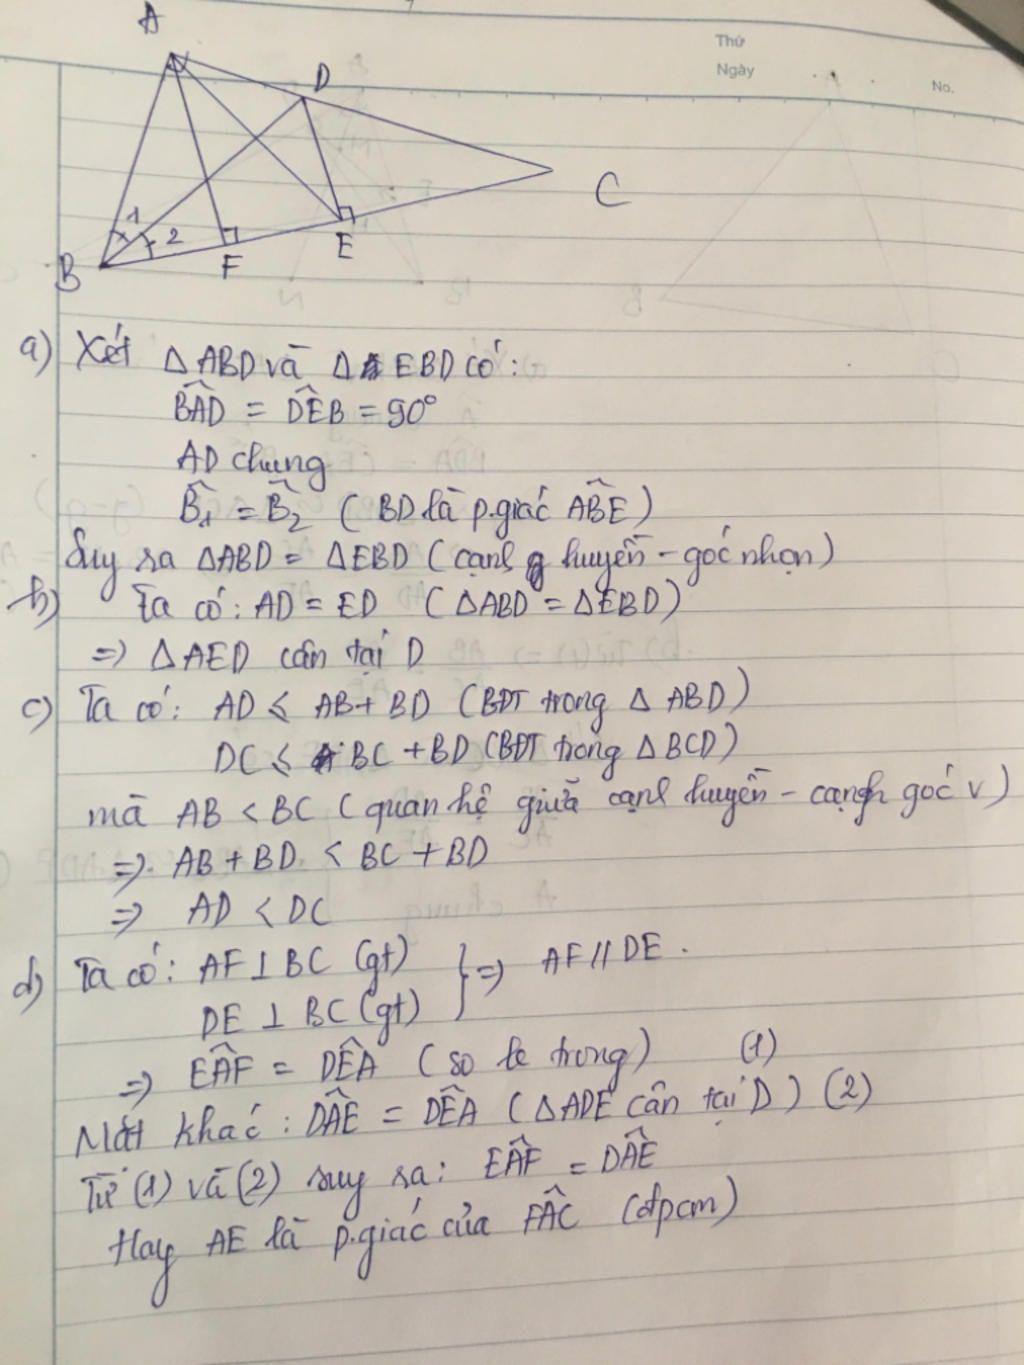 Thứ
Ngày
No.
A
D
C
1
2
B
F
E
a) Xét Δ ABD và Δ EBD có:
BÂD = DÊB = 90°
AD chung
B̂1 = B̂2 ( BD là p.giác AB̂E )
Suy ra ΔABD = ΔEBD ( cạnh huyền - góc nhọn )
b) Ta có: AD = ED ( ΔABD = ΔEBD )
=> ΔAED cân tại D
c) Ta có: AD ≤ AB + BD (BĐT trong Δ ABD)
DC ≤ BC + BD (BĐT trong ΔBCD)
mà AB < BC ( quan hệ giữa cạnh huyền - cạnh góc v )
=> AB + BD < BC + BD
=> AD < DC
d) Ta có: AF ⊥ BC (gt) } => AF // DE .
DE ⊥ BC (gt)
=> EÂF = DÊA ( so le trong ) (1)
Mặt khác : DÂE = DÊA ( ΔADE cân tại D ) (2)
Từ (1) và (2) suy ra : EÂF = DÂE
Hay AE là p.giác của FÂC (đpcm)